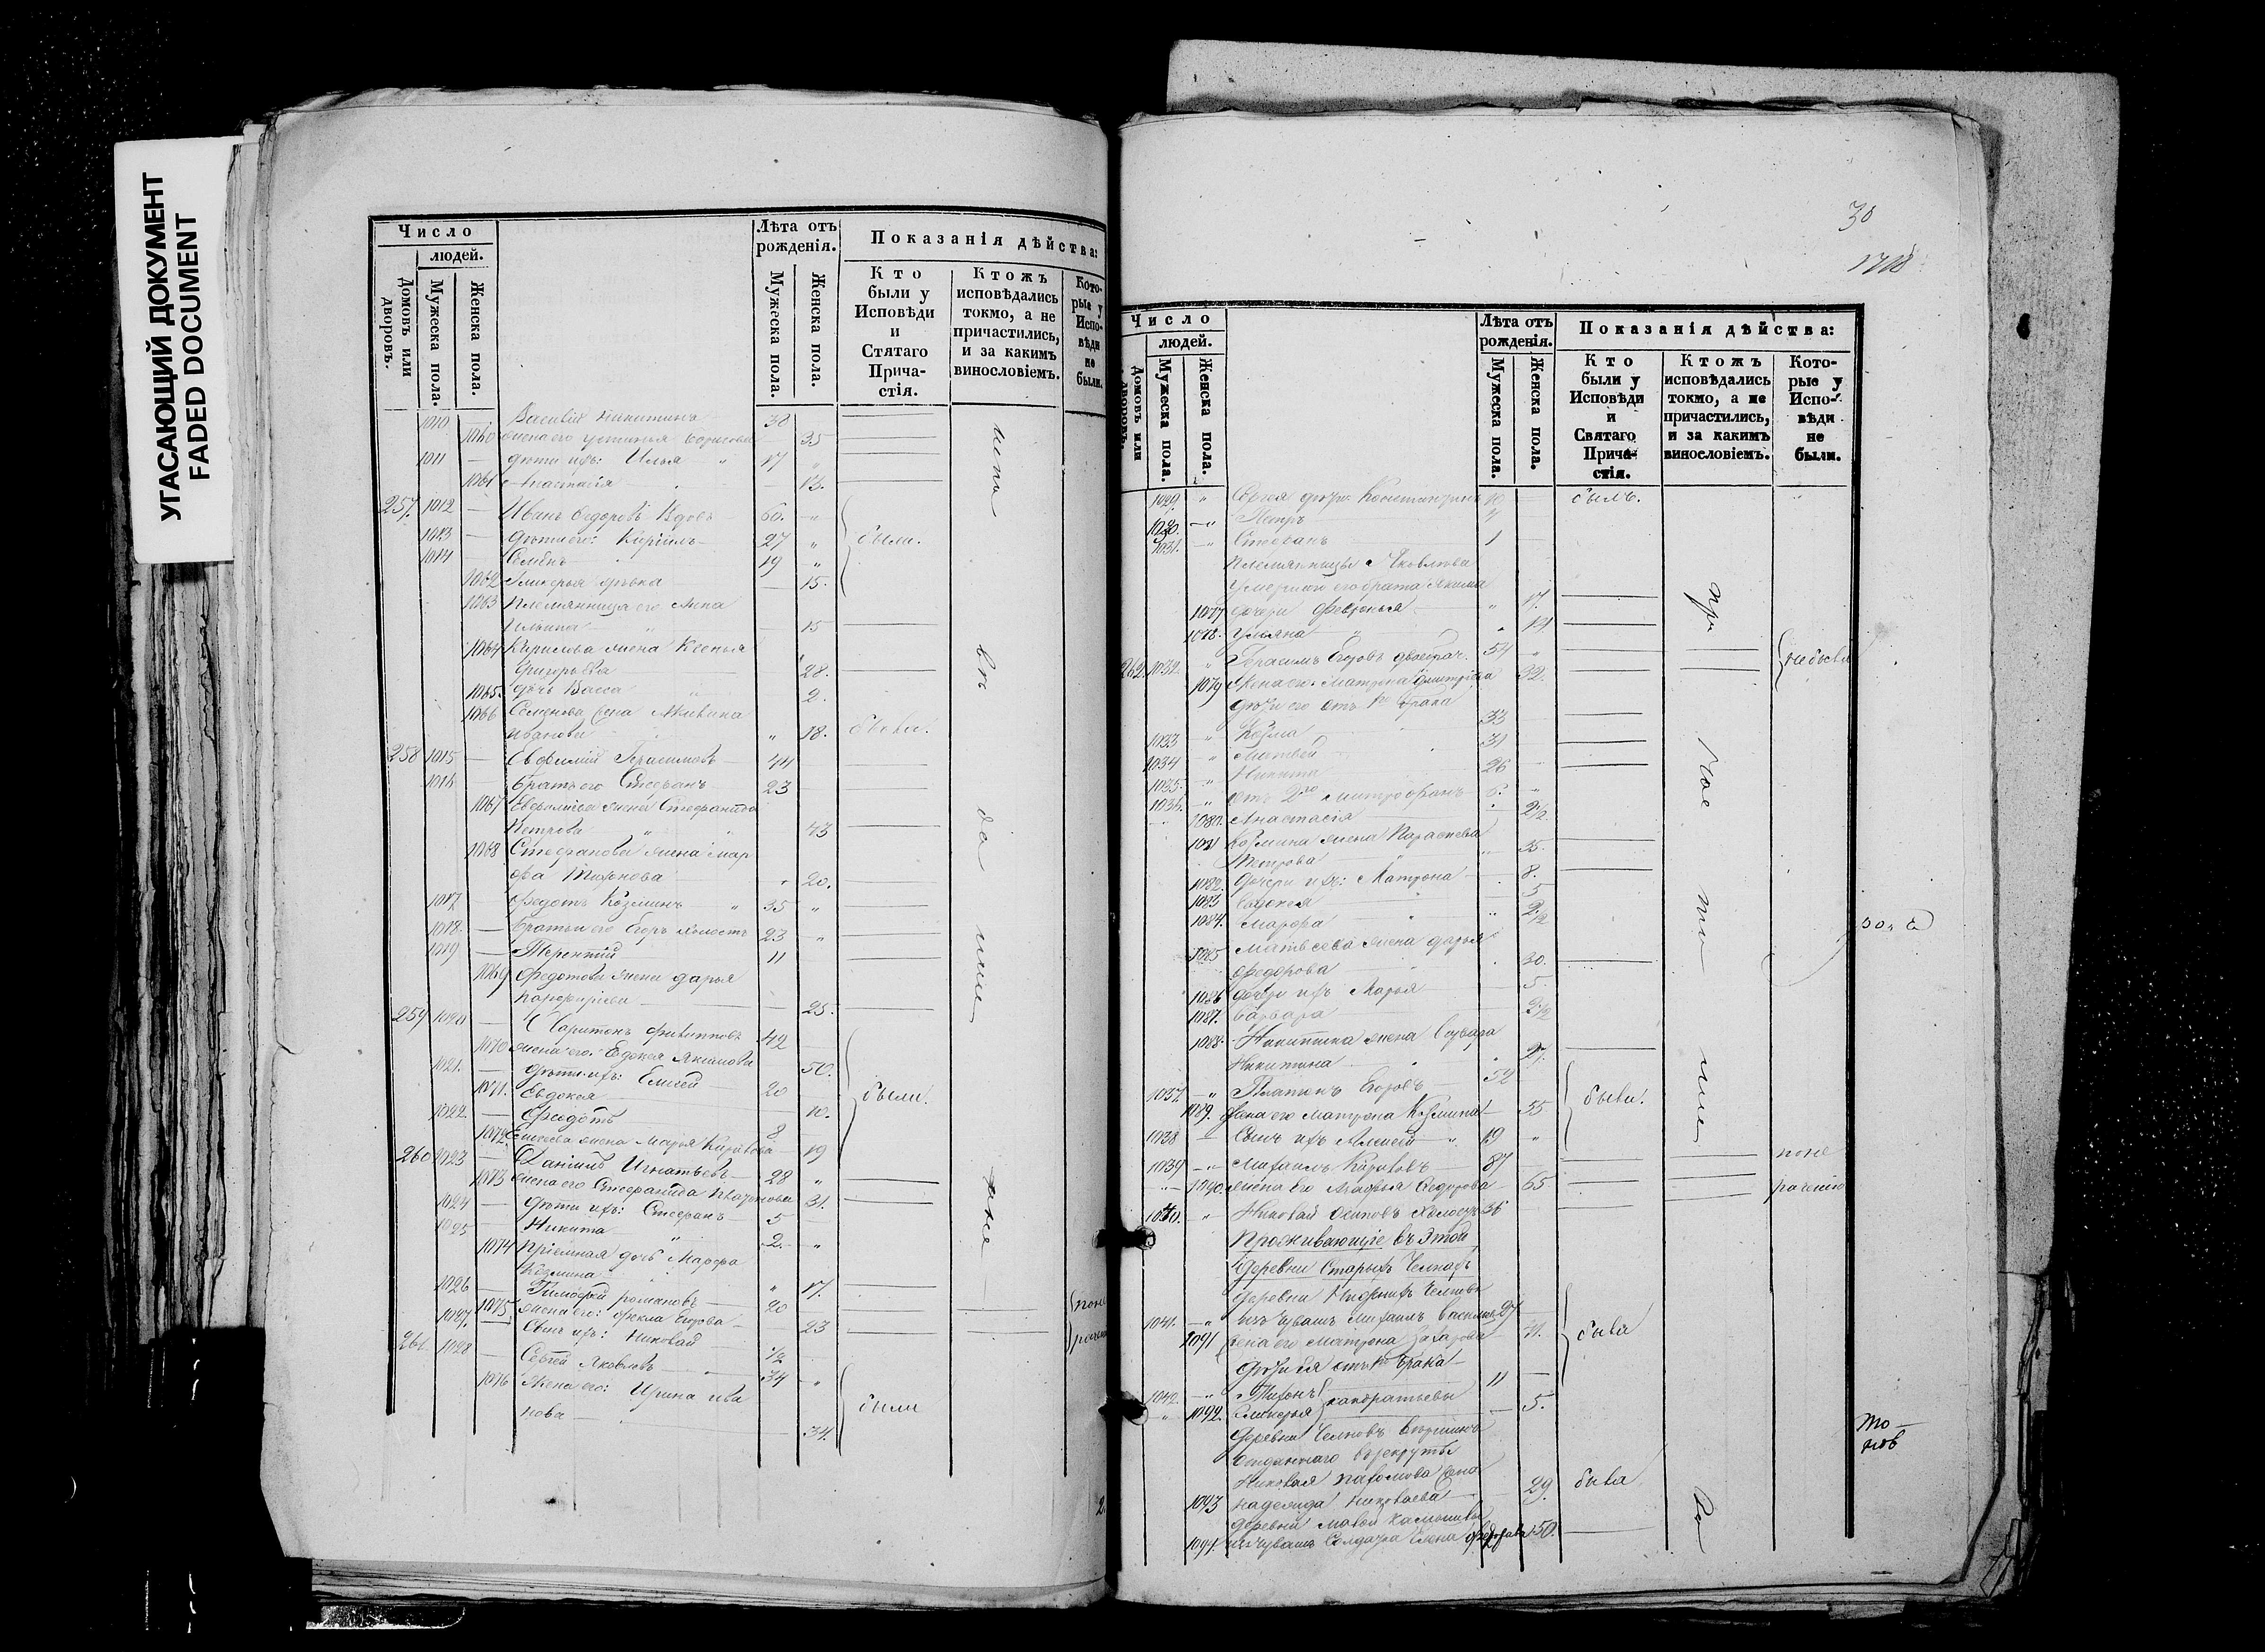 УГАСАЮЩИЙ ДОКУМЕНТ
FADED DOCUMENT
Число
людей.
Домовъ или дворовъ.
Мужеска пола.
Женска пола.
Лѣта отъ рожденія.
Мужеска пола.
Женска пола.
Показанія дѣйства:
Кто были у Исповѣди и Стятаго Причастія.
Ктожъ исповѣдались токмо, а не причастились, и за какимъ винословіемъ.
Которые у Исповѣди не были.
1010 Василій Никитинъ 38
1060 жена его Устинья Борисова 35
1011 — дѣти ихъ: Илья 17
1061 Анастасія 13.
257. 1012 — Иванъ Ѳедоровъ Вдовъ 60.
1013 — дѣти его: Кирилъ 27 были.
1014 Семенъ 19
1062 Гликерья дѣвка 15.
1063 Племянница его Анна
Ильина 15
1064 Кирилова жена Ксенья
Григорьева 28.
1065. дочь Васса 2.
1066 Семенова жена Акилина
Иванова 18. были.
258 1015 — Евфимій Герасимовъ 44
1016 — братъ его Стефанъ 23
1067 Евфиміева жена Стефанида
Петрова 43
1068 Стефанова жена Мар
фа Тихонова 20.
1017 — Федотъ Козминъ 35
1018. — братья его Егоръ холостъ 23
1019 — Терентій 11
1069 Федотова жена Дарья
Порфирьева 25.
259 1020 — Харитонъ Филипповъ 42
1070 жена его: Евдокея 50.
1021. — дѣти ихъ: Елисей 20
1071. Евдокея 10. были.
1022. — Федотъ 8
1072 Елисеева жена Марья Кирилова 19
260 1023 — Даніилъ Игнатьевъ 28
1073 жена его Стефанида Платонова 31.
1024 — дѣти ихъ: Стефанъ 5
1025 — Никита 2.
1074 Пріемная дочь Марфа
Козмина 17.
1026 — Тимофей Романовъ 20
1075 жена его: Фекла Егорова 23
1027. сынъ ихъ: Николай 1/2
261. 1028 — Сергей Яковлевъ 34
1076 жена его: Ирина Ива
нова 34. были
30
Число
людей.
Домовъ или дворовъ.
Мужеска пола.
Женска пола.
Лѣта отъ рожденія.
Мужеска пола.
Женска пола.
Показанія дѣйства:
Кто были у Исповѣди и Святаго Причастія.
Ктожъ исповѣдались токмо, а не причастились, и за какимъ винословіемъ.
Которые у Исповѣди не были.
1029. Сергея дѣти: Константинъ 10 былъ.
1030. Петръ 4
1031. Стефанъ 1
Племянницы Яковлева
Умершаго его брата Якима
1077 дочери Февронья 17.
1078. Ульяна 14
262. 1032. Герасимъ Егоровъ двоебрач. 54 не были
1079 жена его Матрона Дмитріева 32.
дѣти его отъ 1го брака
1033 Козма 33
1034 Матвей 31
1035. Никита 26
1036. отъ 2го Митрофанъ 6.
1080. Анастасія 2 1/2
1081 Козмина жена Параскева
Петрова 35.
1082. дочери ихъ: Матрона 8.
1083 Евдокея 5
1084. Марфа 2 1/2
1085 Матвеева жена Дарья
Федорова 30.
1086 дочери ихъ Марья 5.
1087. Варвара 2 1/2
1088. Никитина жена
Никитина 27.
1037. Платонъ Егоровъ 52
1089. жена его Матрона Козмина 55 были.
1038 — сынъ ихъ Алексей 19
1039 Михаилъ Кириловъ 87 поне
1090. жена его Агафья Федорова 65 раченію
1040. Николай Осиповъ холостъ 36
Проживающіе въ этой
деревни Старыхъ Челнахъ
деревни Нижнихъ Челновъ
1041. изъ чувашъ Михаилъ Васильевъ 27
1091 жена его Матрона Захарова 31. были
дѣти ея отъ 1го брака
1042. Тихонъ 11
1092. Гликерья Кондратьевы 5.
деревни Челновъ
отданнаго въ рекруты
Николая Пахомова жена
1093 Надежда Николаева 29. была
деревни Малой Камышлы
1094. изъ чувашъ Солдатка Елена Федорова 50.